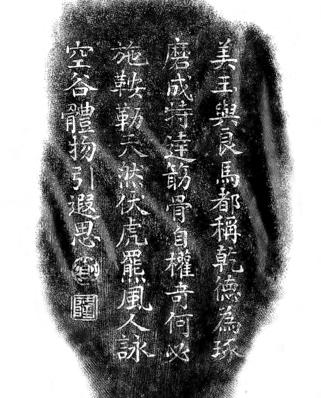 美玉與良馬都稱乾德為琢
磨成特達筋骨自權奇何必
施鞍勒天然伏虎羆風人詠
空谷體物引遐思